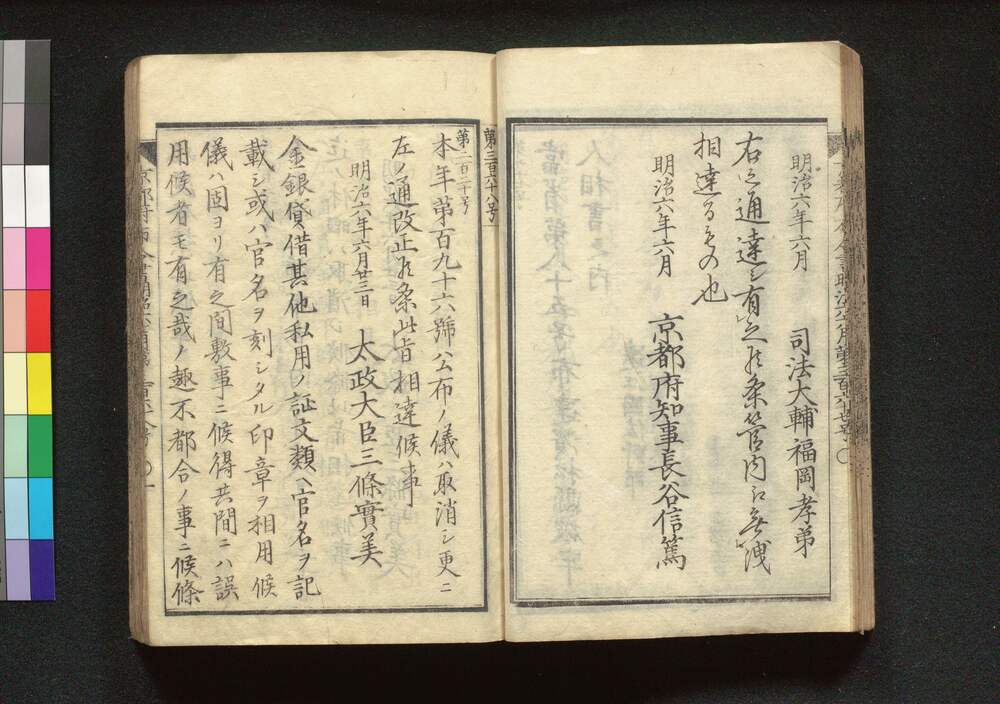 明治六年六月　司法大輔福岡孝弟
右之通達シ有之候条管内江無洩
相達るもの也
明治六年六月　京都府知事長谷信篤
第三百六十八号
第二百二十号
本年第百九十六號公布ノ儀ハ取消シ更ニ
左ノ通改正候条此旨相達候事
明治六年六月廿三日　太政大臣三條實美
金銀貸借其他私用ノ証文類ヘ官名ヲ記
載シ或ハ官名ヲ刻シタル印章ヲ相用候
儀ハ固ヨリ有之間敷事ニ候得共間ニハ誤
用候者モ有之哉ノ趣不都合ノ事ニ候條